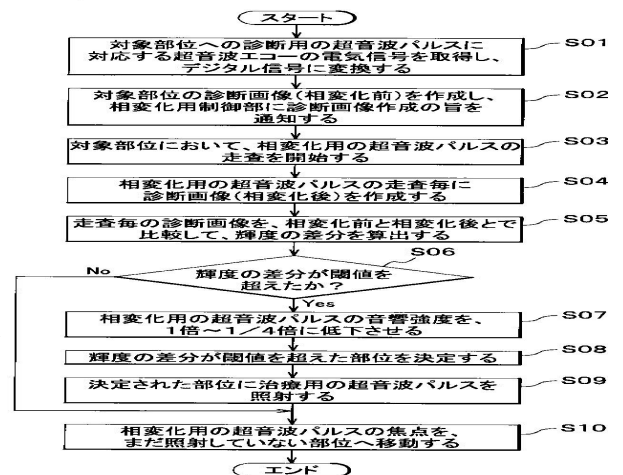 スタート
対象部位への診断用の超音波パルスに
対応する超音波エコーの電気信号を取得し、
デジタル信号に変換する
S01
対象部位の診断画像(相変化前)を作成し、
相変化用制御部に診断画像作成の旨を
通知する
S02
対象部位において、相変化用の超音波パルスの
走査を開始する
S03
相変化用の超音波パルスの走査毎に
診断画像(相変化後)を作成する
S04
走査毎の診断画像を、相変化前と相変化後とで
比較して、輝度の差分を算出する
S05
輝度の差分が閾値を
超えたか?
S06
No
Yes
相変化用の超音波パルスの音響強度を、
1倍~1/4倍に低下させる
S07
輝度の差分が閾値を超えた部位を決定する
S08
決定された部位に治療用の超音波パルスを
照射する
S09
相変化用の超音波パルスの焦点を、
まだ照射していない部位へ移動する
S10
エンド